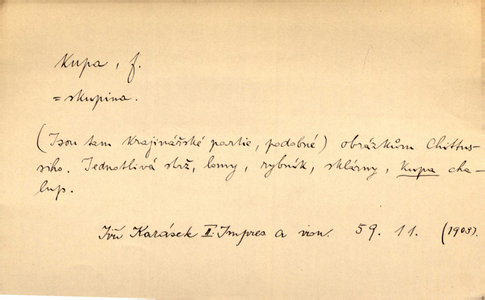 Kupa, f.
= skupina.
(Jsou tam krajinářské partie, podobné) obrázkům Chittus-
siho. Jednotlivá strž, lomy, rybník, sklárny, kupa cha-
lup.
Jiří Karásek II: Impres a iron. 59. 11. (1903).